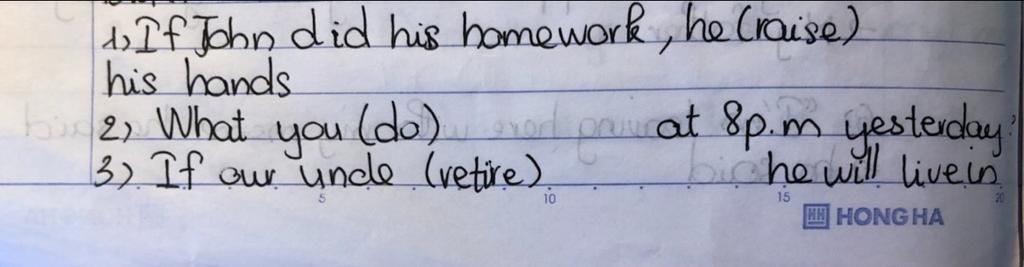 1) If John did his homework, he (raise)
his hands
2) What you (do) at 8p.m yesterday?
3) If our uncle (retire) he will live in
5 10 15 20
HH HONG HA